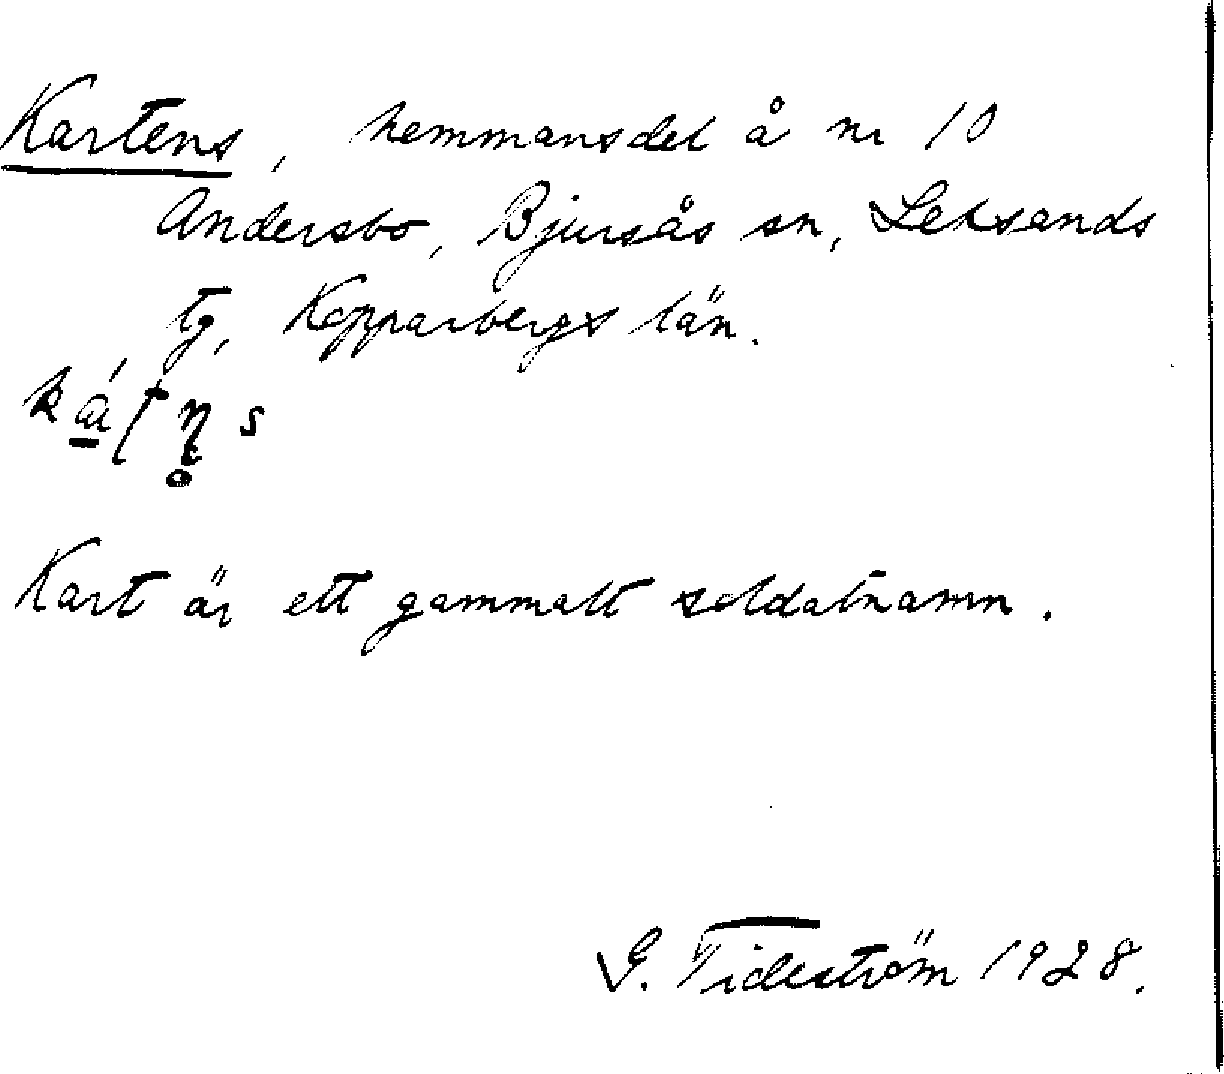 Kartens, hemmansdel å nr 10
Andersbo, Bjursås sn, Leksands
tg, Kopparbergs län.
Kart är ett gammalt soldatnamn.
G. Tideström 1928.